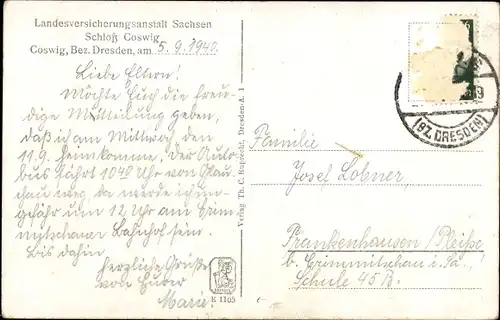 Landesversicherungsanstalt Sachsen
Schloß Coswig
Coswig, Bez. Dresden, am 5.9.1940.
Liebe Eltern!
Möchte Euch die freu-
dige Mitteilung geben,
daß ich am Mittwoch, den
11.9. heimkomme. Der Auto-
bus fährt 10 40 Uhr von Glau-
chau weg, da werde ich un-
gefähr um 12 Uhr am Crim-
mitschauer Bahnhof sein.
Bis dahin
herzliche Grüße
von Eurer
Marie.
Verlag Th. C. Ruprecht, Dresden-A. 1
K 1105
(BZ. DRESDEN)
Familie
Josef Lobner,
Frankenhausen/Pleiße
b. Crimmitschau i. Sa.,
Schule 45 B.